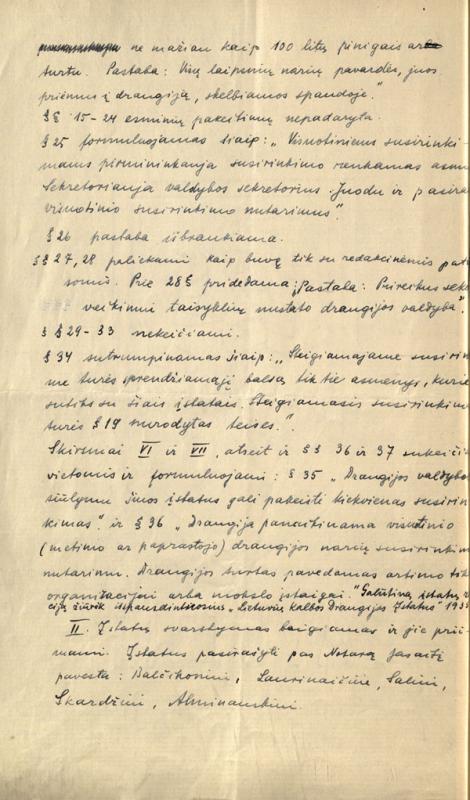 ne mažiau kaip 100 litų pinigais arba
turtu. Pastaba: Visų laipsnių narių pavardės, juos
priėmus į draugiją, skelbiamos spaudoje."
§§ 15-24 esminių pakeitimų nepadaryta.
§ 25 formuluojamas šiaip: „Visuotiniems susirinki-
mams pirmininkauja susirinkimo renkamas asmuo
Sekretoriauja valdybos sekretorius. Juodu ir pasira
visuotinio susirinkimo nutarimus".
§ 26 pastaba išbraukiama.
§§ 27, 28 paliekami kaip buvę tik su redakcinėmis pat
somis. Prie 28 § pridedama: „Pastaba:
veikimui taisykles nustato draugijos valdyba".
§ § 29-33 nekeičiami.
§ 34 sutrumpinamas šiaip: „Steigiamajame susirin
me turės sprendžiamąjį balsą tik tie asmenys, kurie
sutiks su šiais įstatais. Steigiamasis susirinkim
turės § 19 nurodytas teises."
Skirsniai VI ir VII, atseit ir §§ 36 ir 37 sukeičia
vietomis ir formuluojami: § 35 „Draugijos valdybos
siūlymu šiuos įstatus gali pakeisti kiekvienas susirin
kimas". ir § 36 „Draugija panaikinama visuotinio
(metinio ar paprastojo) draugijos narių susirinkim
nutarimu. Draugijos turtas pavedamas artimo tik
organizacijai arba mokslo įstaigai." Galutinę įstatų r
ciją žiūrėk išspausdintuosius „Lietuvių Kalbos Draugijos Įstatus" 193
II. Įstatų svarstymas baigiamas ir jie prii-
mami. Įstatus pasirašyti pas Notarą Jasaitį
pavesta: Balčikoniui, Laurinaičiui, Saliui,
Skardžiui, Alminauskiui.